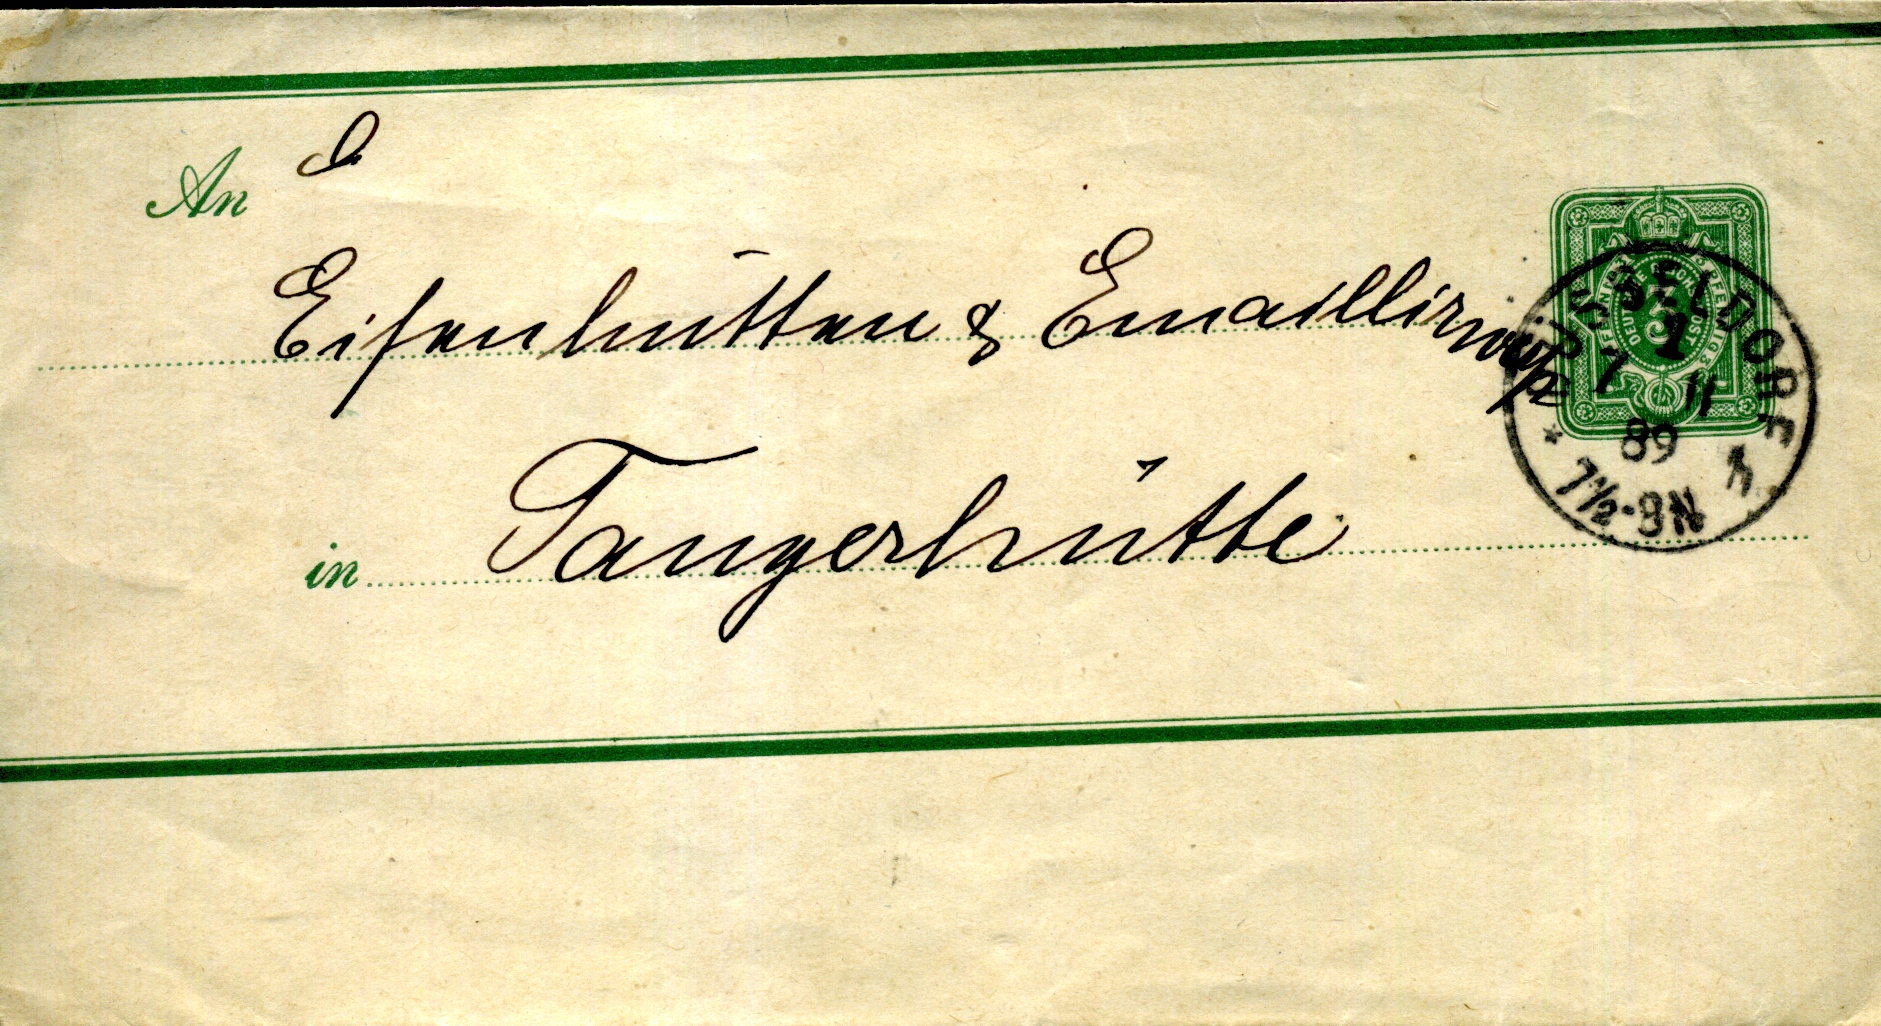 An D.
Eisenhütten & Emaillirwerk
in Tangerhütte
DEUTSCHE REICHSPOST
3
PFENNIG 3 PFENNIG 3
DÜSSELDORF
1
7 11
89
7½-8N